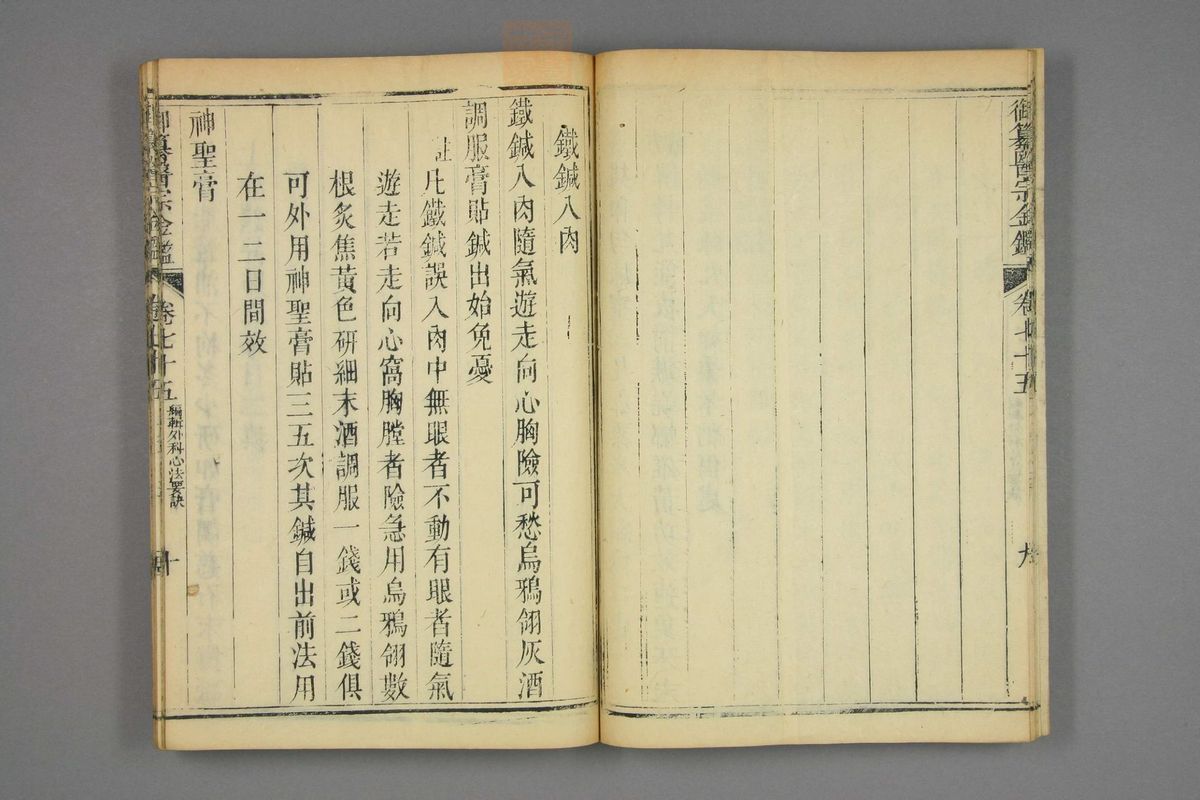 御纂醫宗金鑑
卷七十五
九
鐵鍼入肉
鐵鍼入肉隨氣遊走向心胸險可愁烏鴉翎灰酒
調服膏貼鍼出始免憂
註凡鐵鍼誤入肉中無眼者不動有眼者隨氣
遊走若走向心窩胸膛者險急用烏鴉翎數
根炙焦黃色研細末酒調服一錢或二錢俱
可外用神聖膏貼三五次其鍼自出前法用
在一二日間效
神聖膏
御纂醫宗金鑑
卷七十五
編輯外科心法要訣
十